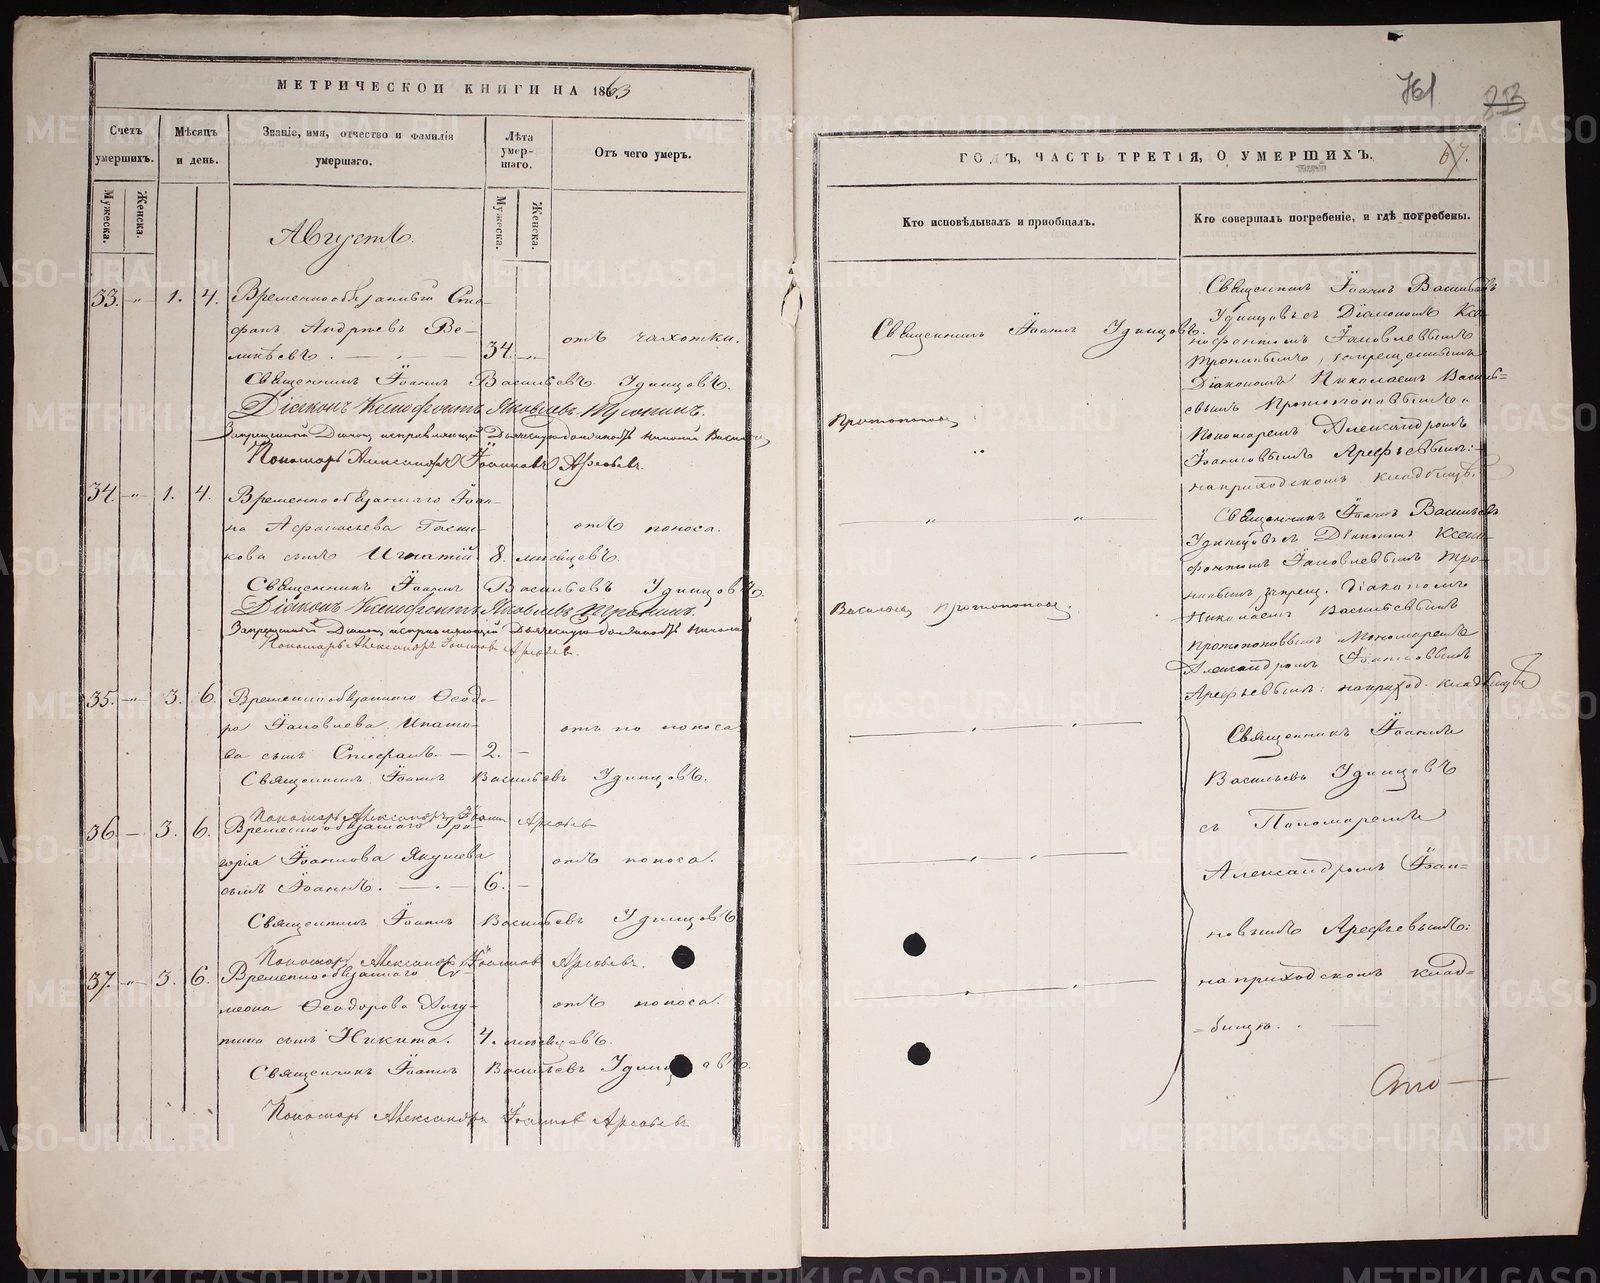 МЕТРИЧЕСКОЙ КНИГИ НА 1863
Счетъ умершихъ.
Мужеска.
Женска.
Мѣсяцъ и день.
Званіе, имя, отчество и фамилія умершаго.
Лѣта умершаго.
Мужеска.
Женска.
Отъ чего умеръ.
Августъ.
33. -"- 1. 4. Временнообязанный Сте-
фанъ Андреевъ Ве-
ликѣевъ. 34. отъ чахотки.
Священникъ Іоаннъ Васильевъ Удинцовъ.
Діаконъ Ксенофонтъ Яковлевъ Тронинъ.
Запрещенный Діаконъ исправляющій Дьяческую должность Николай Васильевъ
Пономарь Александръ Іоанновъ Арефьевъ.
34. -"- 1. 4. Временнообязаннаго Іоан-
на Афанасьева
кова сынъ Игнатій. 8. мѣсяцевъ. отъ поноса.
Священникъ Іоаннъ Васильевъ Удинцовъ
Діаконъ Ксенофонтъ Яковлевъ Тронинъ.
Запрещенный Діаконъ исправляющій Дьяческую должность Николай
Пономарь Александръ Іоанновъ Арефьевъ.
35. -"- 3. 6. Временнообязаннаго Ѳеодо-
ра Іаковлева Ипато-
ва сынъ Стефанъ. 2. отъ поноса
Священникъ Іоаннъ Васильевъ Удинцовъ.
Пономарь Александръ Іоанновъ Арефьевъ
36 - 3. 6. Временнообязаннаго Гри-
горія Іоаннова Якушева
сынъ Іоаннъ. 6. отъ поноса.
Священникъ Іоаннъ Васильевъ Удинцовъ
Пономарь Александръ Іоанновъ Арефьевъ.
37. -"- 3. 6. Временнообязаннаго Си-
меона Ѳеодорова
тина сынъ Никита. 4. мѣсяцевъ. отъ поноса.
Священникъ Іоаннъ Васильевъ Удинцовъ.
Пономарь Александръ Іоанновъ Арефьевъ
761
67.
ГОДЪ, ЧАСТЬ ТРЕТІЯ, О УМЕРШИХЪ.
Кто исповѣдывалъ и пріобщалъ.
Кто совершалъ погребеніе, и гдѣ погребены.
Священникъ Іоаннъ Удинцовъ.
Протопоповъ
Васильевъ Протопоповъ.
Священникъ Іоаннъ Васильевъ
Удинцовъ съ Діакономъ Ксе-
нофонтомъ Іаковлевымъ
Тронинымъ, запрещеннымъ
Діакономъ Николаемъ Василь-
евымъ Протопоповымъ и
Пономаремъ Александромъ
Іоанновымъ Арефьевымъ:
на приходскомъ кладбищѣ.
Священникъ Іоаннъ Васильевъ
Удинцовъ съ Діакономъ Ксено-
фонтомъ Іаковлевымъ Тро-
нинымъ запрещ. Діакономъ
Николаемъ Васильевымъ
Протопоповымъ и Пономаремъ
Александромъ Іоанновымъ
Арефьевымъ: на приход. кладбищѣ
Священникъ Іоаннъ
Васильевъ Удинцовъ
съ Пономаремъ
Александромъ Іоан-
новымъ Арефьевымъ:
на приходскомъ клад-
бищѣ.
METRIKI.GASO-URAL.RU